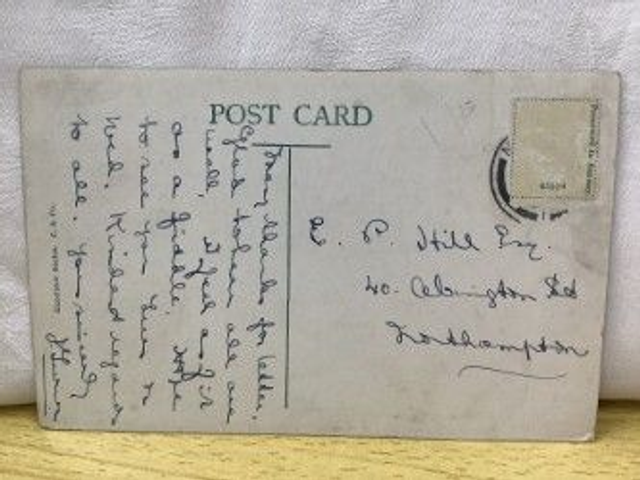 POST CARD
Many thanks for letter.
Glad to hear all are
well, I feel as fit
as a fiddle. Hope
to see you Tues or
Wed. Kindest regards
to all. Yours sincerely
P. Hill Esq.
40. Abington Sq
Northampton